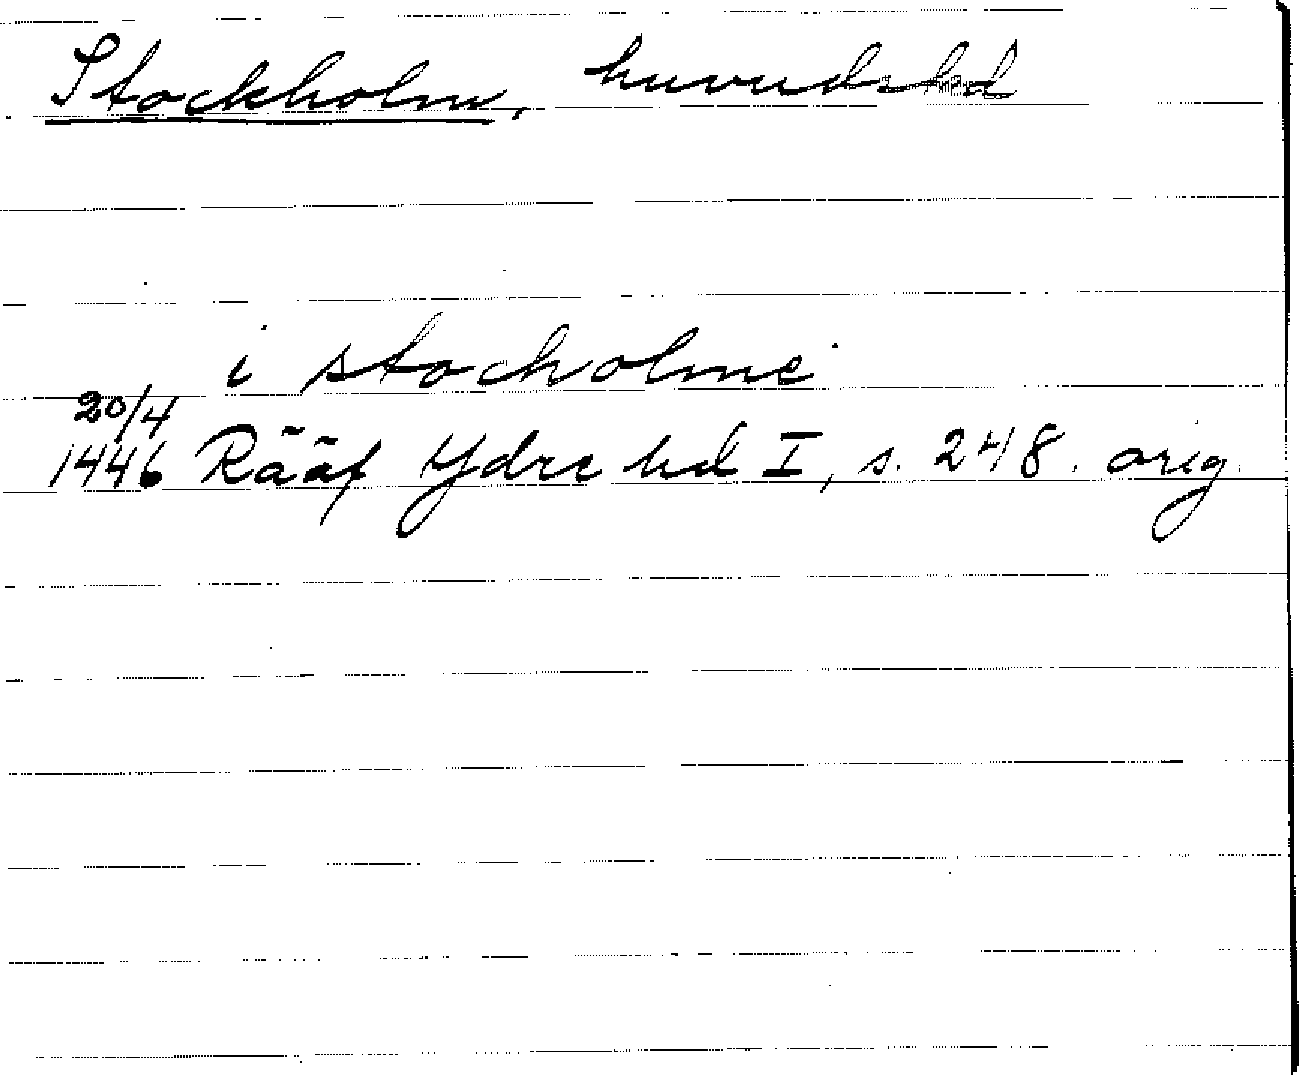 Stockholm, huvudstad
i stocholme
20/4
1446 Rääf Ydre hd I, s. 248. orig.